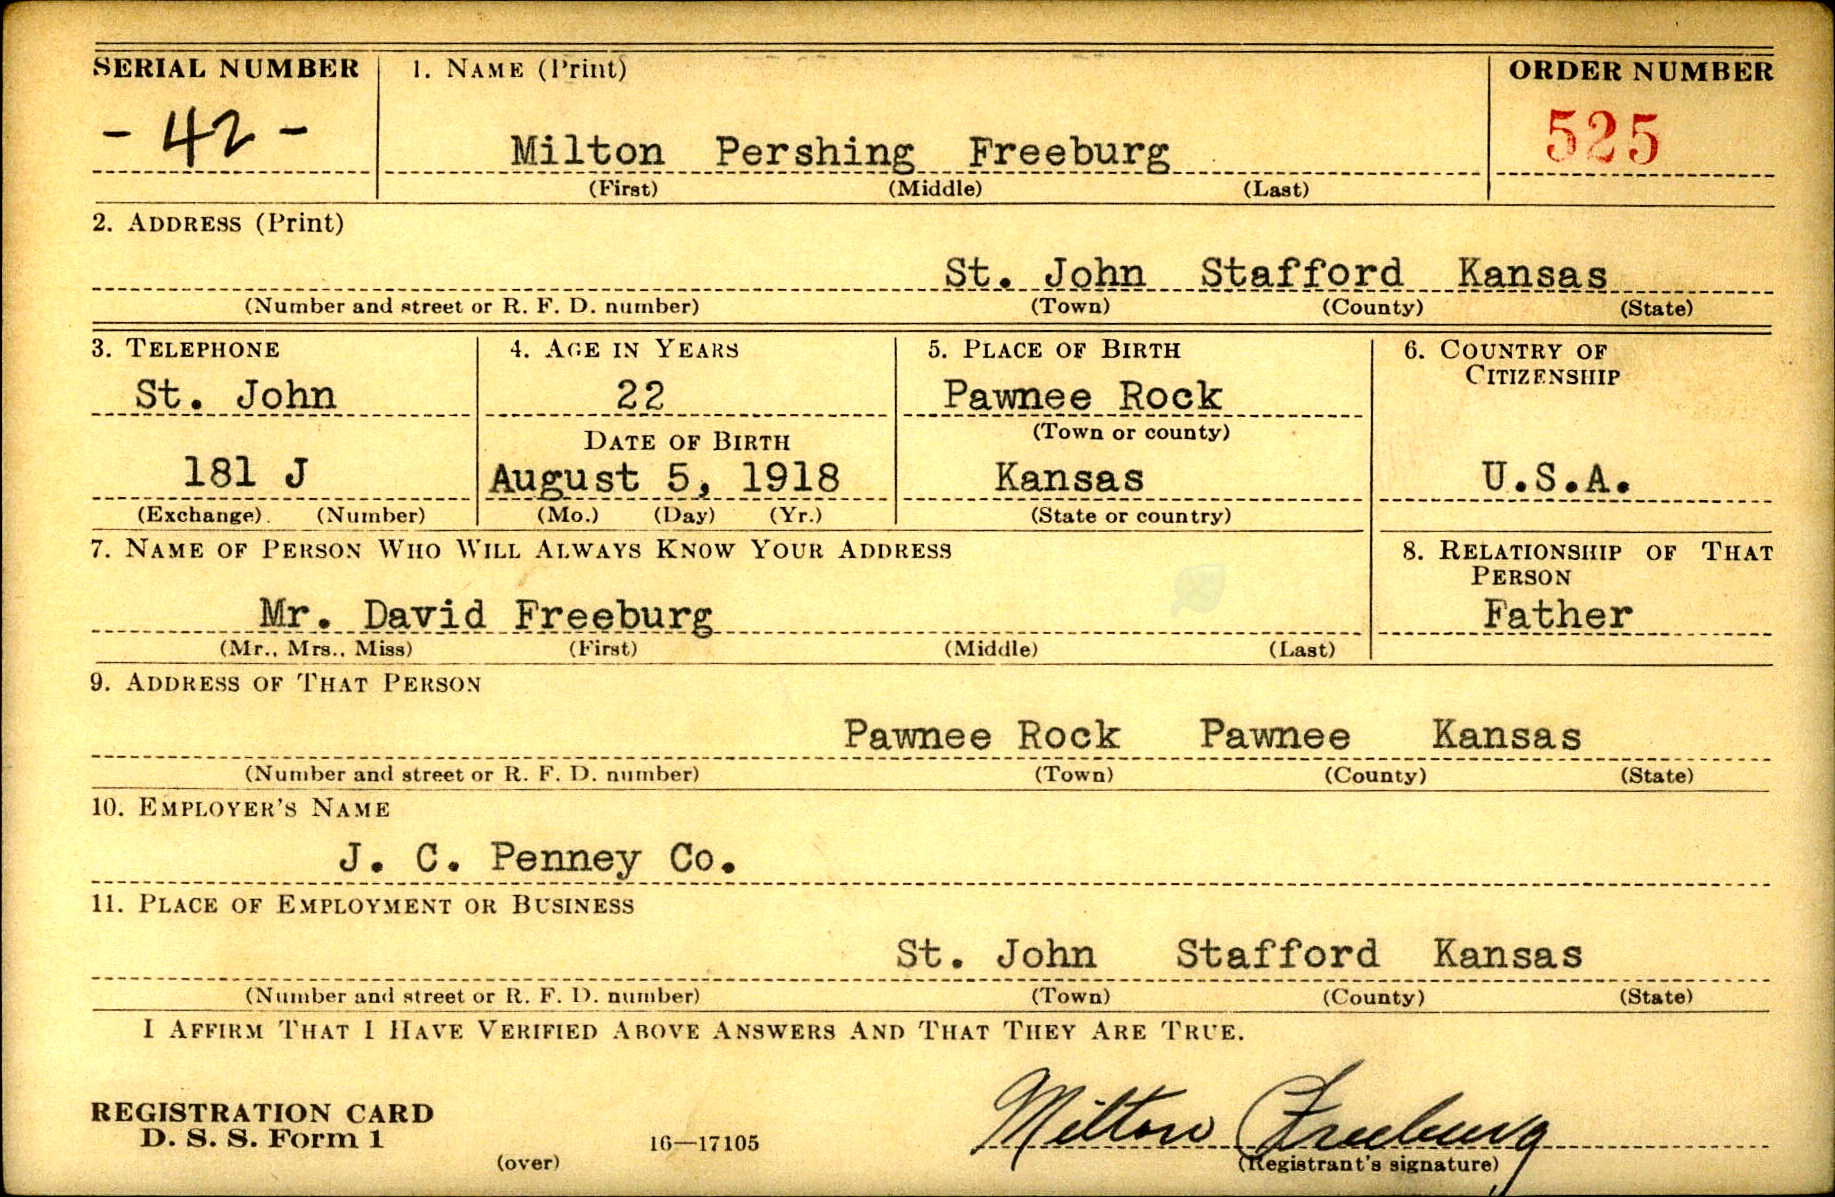 SERIAL NUMBER
1. NAME (Print)
ORDER NUMBER
- 42 -
Milton Pershing Freeburg
525
(First) (Middle) (Last)
2. ADDRESS (Print)
St. John Stafford Kansas
(Number and street or R. F. D. number) (Town) (County) (State)
3. TELEPHONE
4. AGE IN YEARS
5. PLACE OF BIRTH
6. COUNTRY OF
CITIZENSHIP
St. John
22
Pawnee Rock
DATE OF BIRTH
(Town or county)
181 J
August 5, 1918
Kansas
U.S.A.
(Exchange) (Number)
(Mo.) (Day) (Yr.)
(State or country)
7. NAME OF PERSON WHO WILL ALWAYS KNOW YOUR ADDRESS
8. RELATIONSHIP OF THAT
PERSON
Mr. David Freeburg
Father
(Mr., Mrs., Miss) (First) (Middle) (Last)
9. ADDRESS OF THAT PERSON
Pawnee Rock Pawnee Kansas
(Number and street or R. F. D. number) (Town) (County) (State)
10. EMPLOYER'S NAME
J. C. Penney Co.
11. PLACE OF EMPLOYMENT OR BUSINESS
St. John Stafford Kansas
(Number and street or R. F. D. number) (Town) (County) (State)
I AFFIRM THAT I HAVE VERIFIED ABOVE ANSWERS AND THAT THEY ARE TRUE.
REGISTRATION CARD
D. S. S. Form 1
16—17105
Milton Freeburg
(over)
(Registrant's signature)